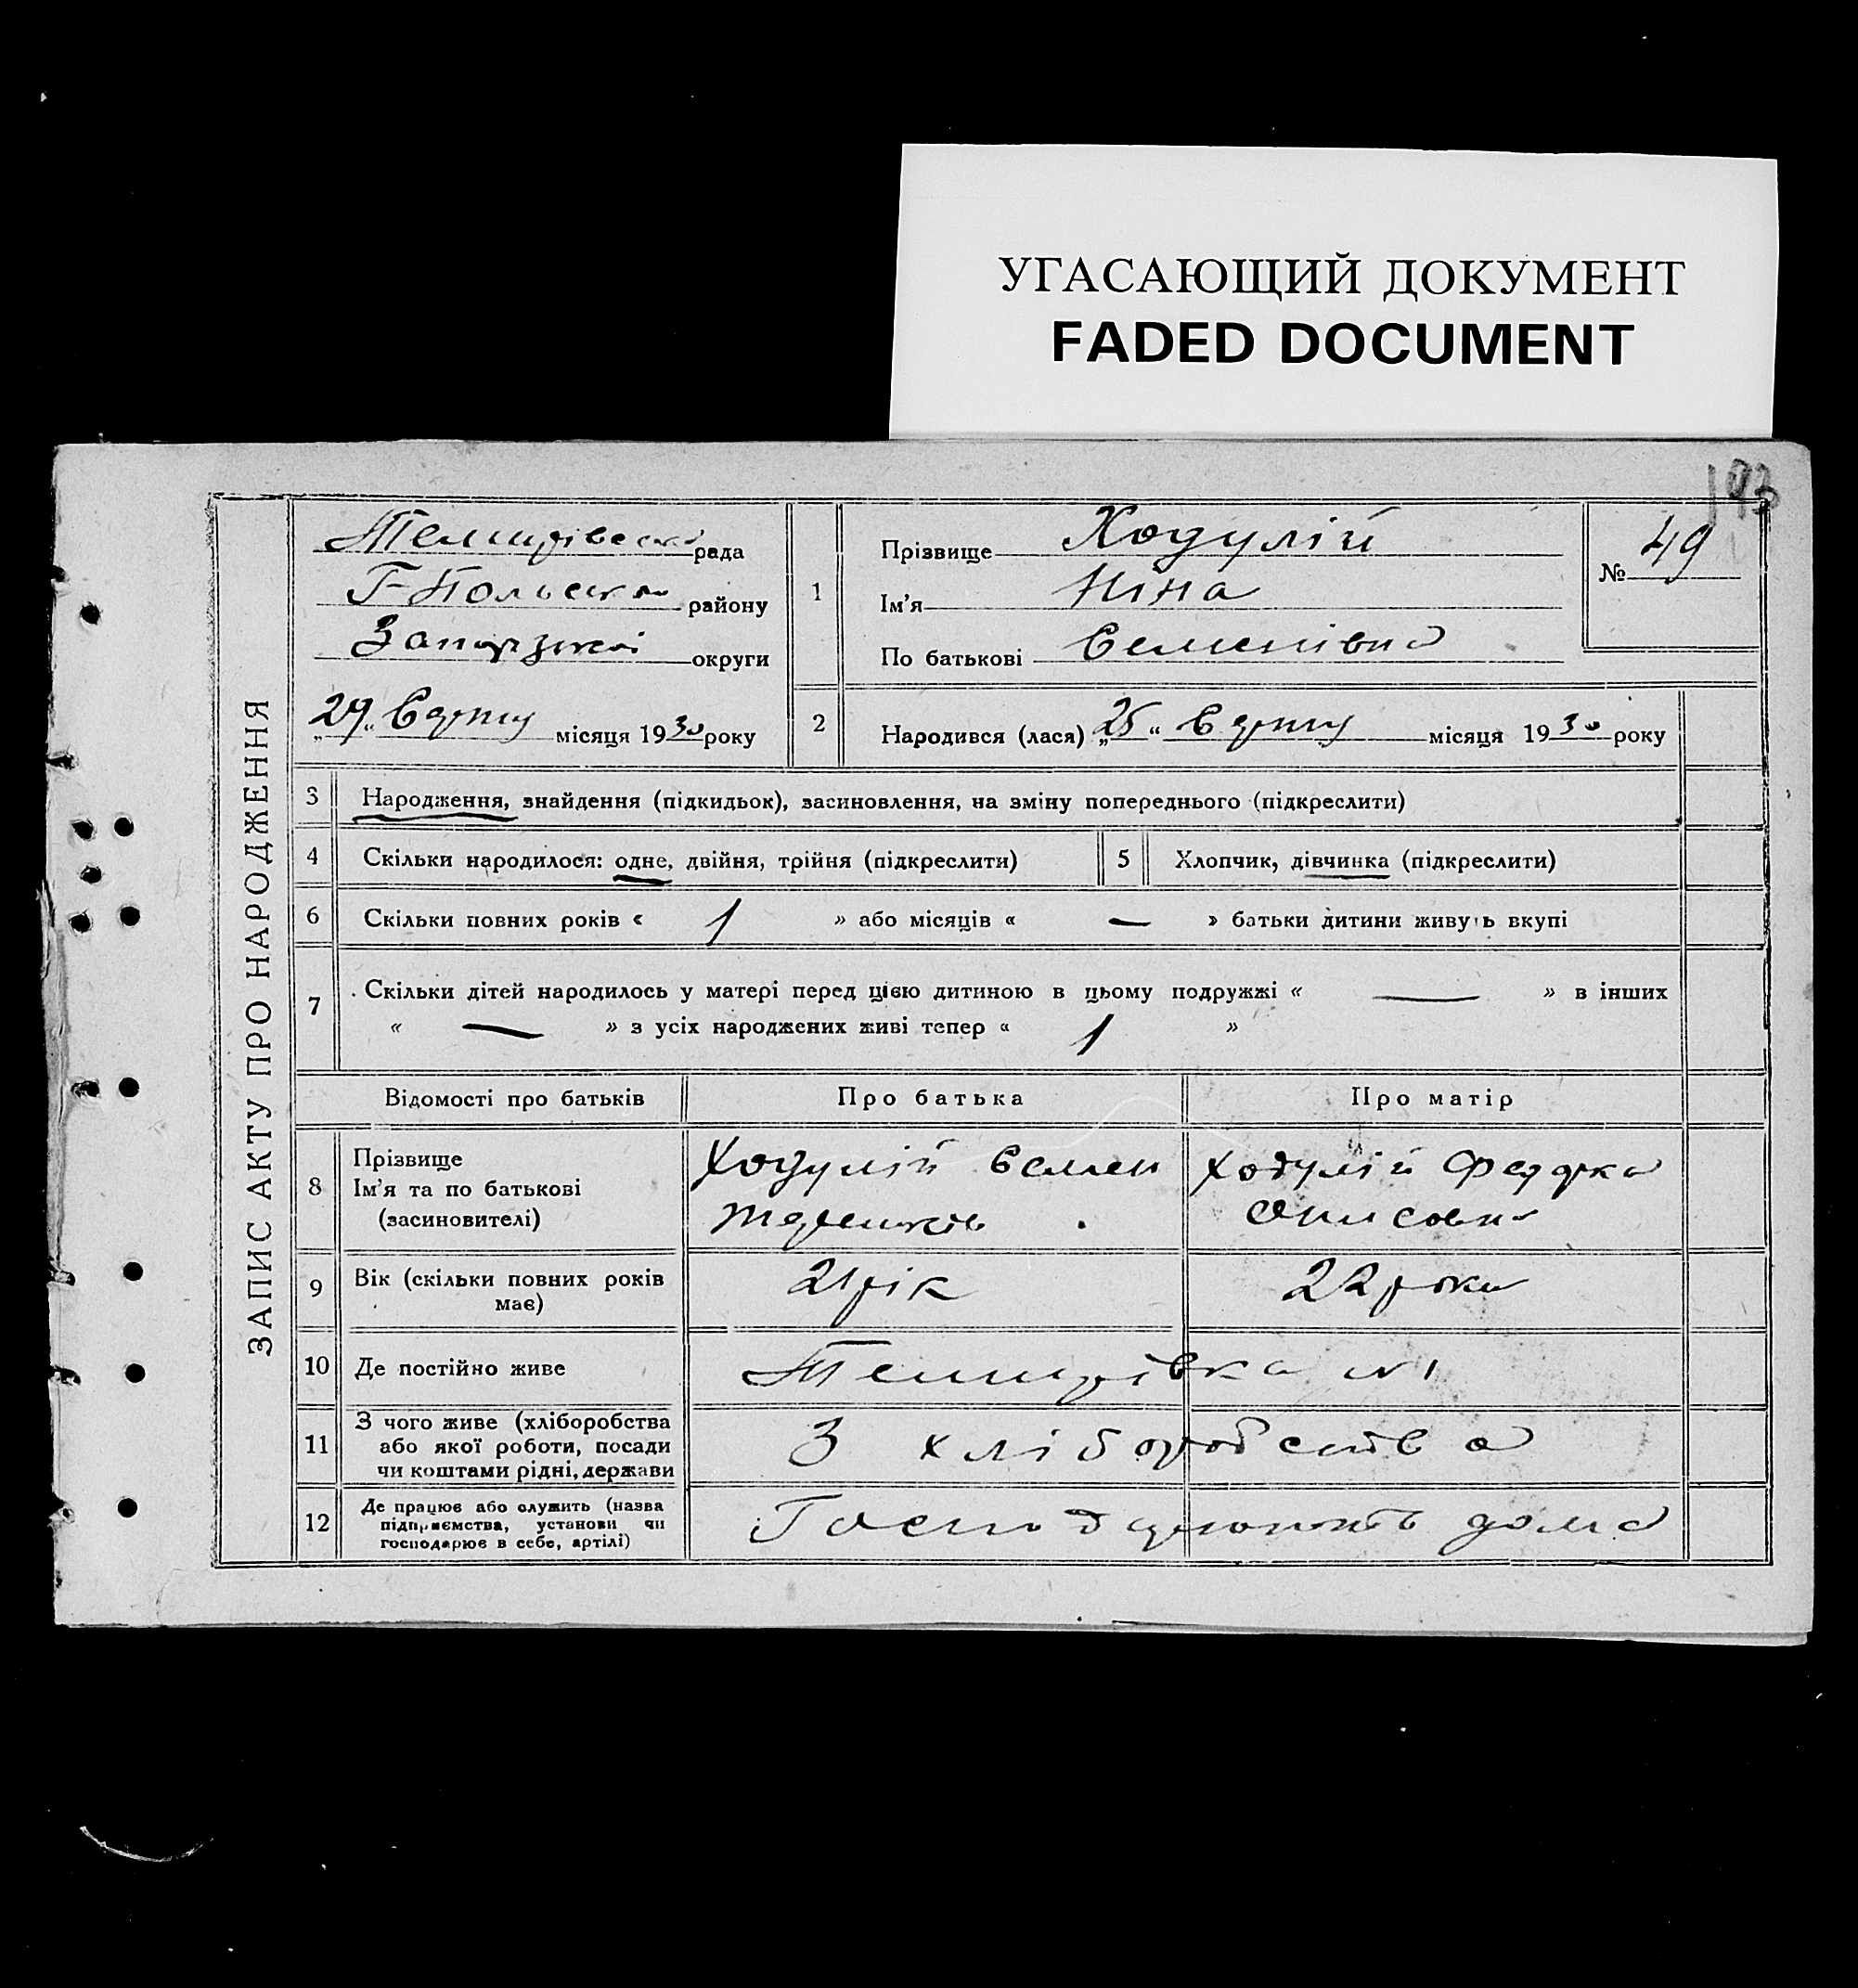 УГАСАЮЩИЙ ДОКУМЕНТ
FADED DOCUMENT
193
ЗАПИС АКТУ ПРО НАРОДЖЕННЯ
Темирівська рада
Г-Польськ району
Запорізької округи
„29“ Серпня місяця 1930 року
1
Прізвище Ходулій
Ім'я Ніна
По батькові Семенівна
№ 49
2 Народився (лася) „25“ Серпня місяця 1930 року
3 Народження, знайдення (підкидьок), засиновлення, на зміну попереднього (підкреслити)
4 Скільки народилося: одне, двійня, трійня (підкреслити)
5 Хлопчик, дівчинка (підкреслити)
6 Скільки повних років « 1 » або місяців « — » батьки дитини живуть вкупі
7 Скільки дітей народилось у матері перед цією дитиною в цьому подружжі « — » в інших
« — » з усіх народжених живі тепер « 1 »
Відомості про батьків Про батька Про матір
8 Прізвище
Ім'я та по батькові
(засиновителі)
Ходулій Семен
Ходулій Федорка
9 Вік (скільки повних років
має)
21 рік
22 роки
10 Де постійно живе Темирівка №1
11 З чого живе (хліборобства
або якої роботи, посади
чи коштами рідні, держави
З хліборобства
12 Де працює або служить (назва
підприємства, установи чи
господарює в себе, артілі)
Господарюють дома